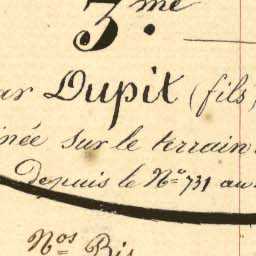 3.me
ar Dupit (fils)
inée sur le terrain
Depuis le No 731 au
Nos Bis